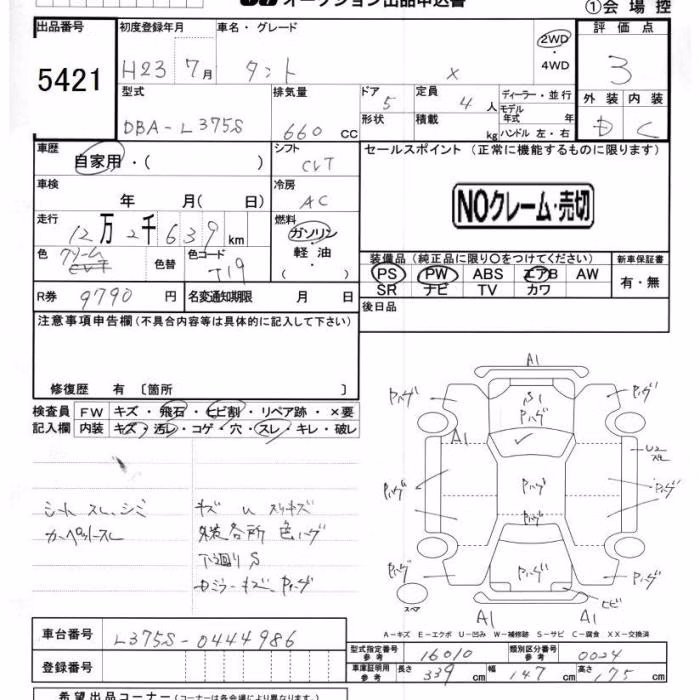 オークション出品申込書
①会場控
出品番号
5421
初度登録年月
H23 7月
車名・グレード
タント
X
2WD
・
4WD
評価点
3
外装 内装
D C
型式
DBA-L375S
排気量
660 CC
ドア
5
形状
定員
4 人
積載
kg
ディーラー・並行
モデル
年式 年
ハンドル 左・右
車歴
自家用・( )
シフト
CVT
セールスポイント (正常に機能するものに限ります)
NOクレーム・売切
車検
年 月( 日)
冷房
AC
走行
12万2千639km
燃料
ガソリン
・
軽油
( )
色
クリーム
色替
色コード
T19
装備品(純正品に限り○をつけてください)
新車保証書
PS PW ABS エアB AW
SR ナビ TV カワ
有・無
R券
9790 円
名変通知期限
月 日
後日品
注意事項申告欄(不具合内容等は具体的に記入して下さい)
修復歴 有 〔箇所 〕
検査員
記入欄
FW キズ・飛石・ヒビ割・リペア跡・×要
内装 キズ・汚レ・コゲ・穴・スレ・キレ・破レ
シート スレ、シミ
カーペットスレ
キズ U スリキズ
外装各所 色ハゲ
下廻りS
カミラーキズ、Pハゲ
A1
S1
Pハゲ
Pハゲ
Pハゲ
A1
U2
Pハゲ
Pハゲ
Pハゲ
Pハゲ
Pハゲ
Pハゲ
Pハゲ
スペア
ヒビ
A1
A1
A-キズ E-エクボ U-凹み W-補修跡 S-サビ C-腐食 XX-交換済
車台番号
L375S-0444986
登録番号
型式指定番号
参考
16010
類別区分番号
参考
0024
車庫証明用
参考
長さ 339 cm
幅 147 cm
高さ 175 cm
希望出品コーナー(コーナーは各会場により異なります。)